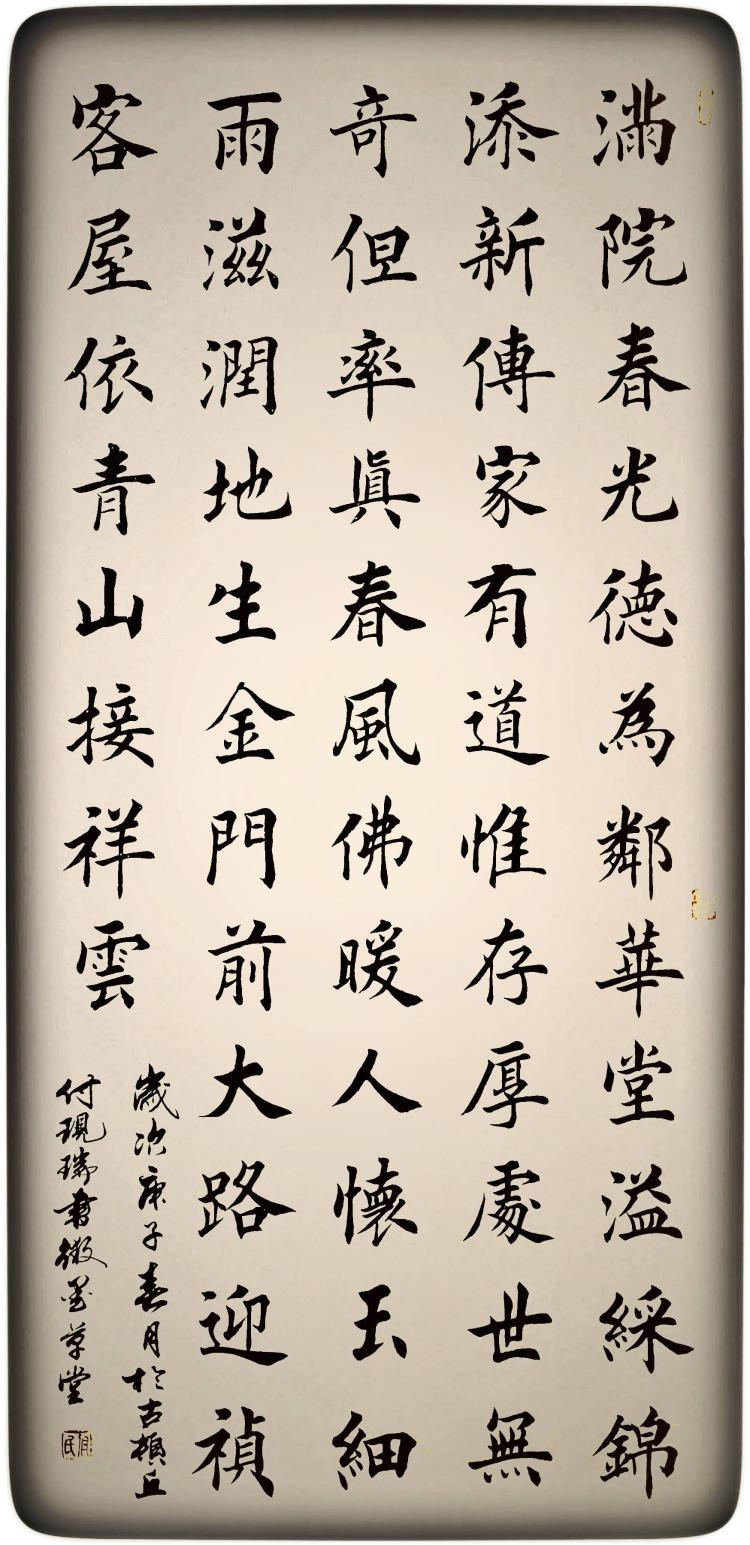 滿院春光德為鄰華堂溢綵錦
添新傳家有道惟存厚處世無
奇但率真春風佛暖人懷玉細
雨滋潤地生金門前大路迎禎
客屋依青山接祥雲
歲次庚子春月於古頓丘
付現瑞書徽墨草堂